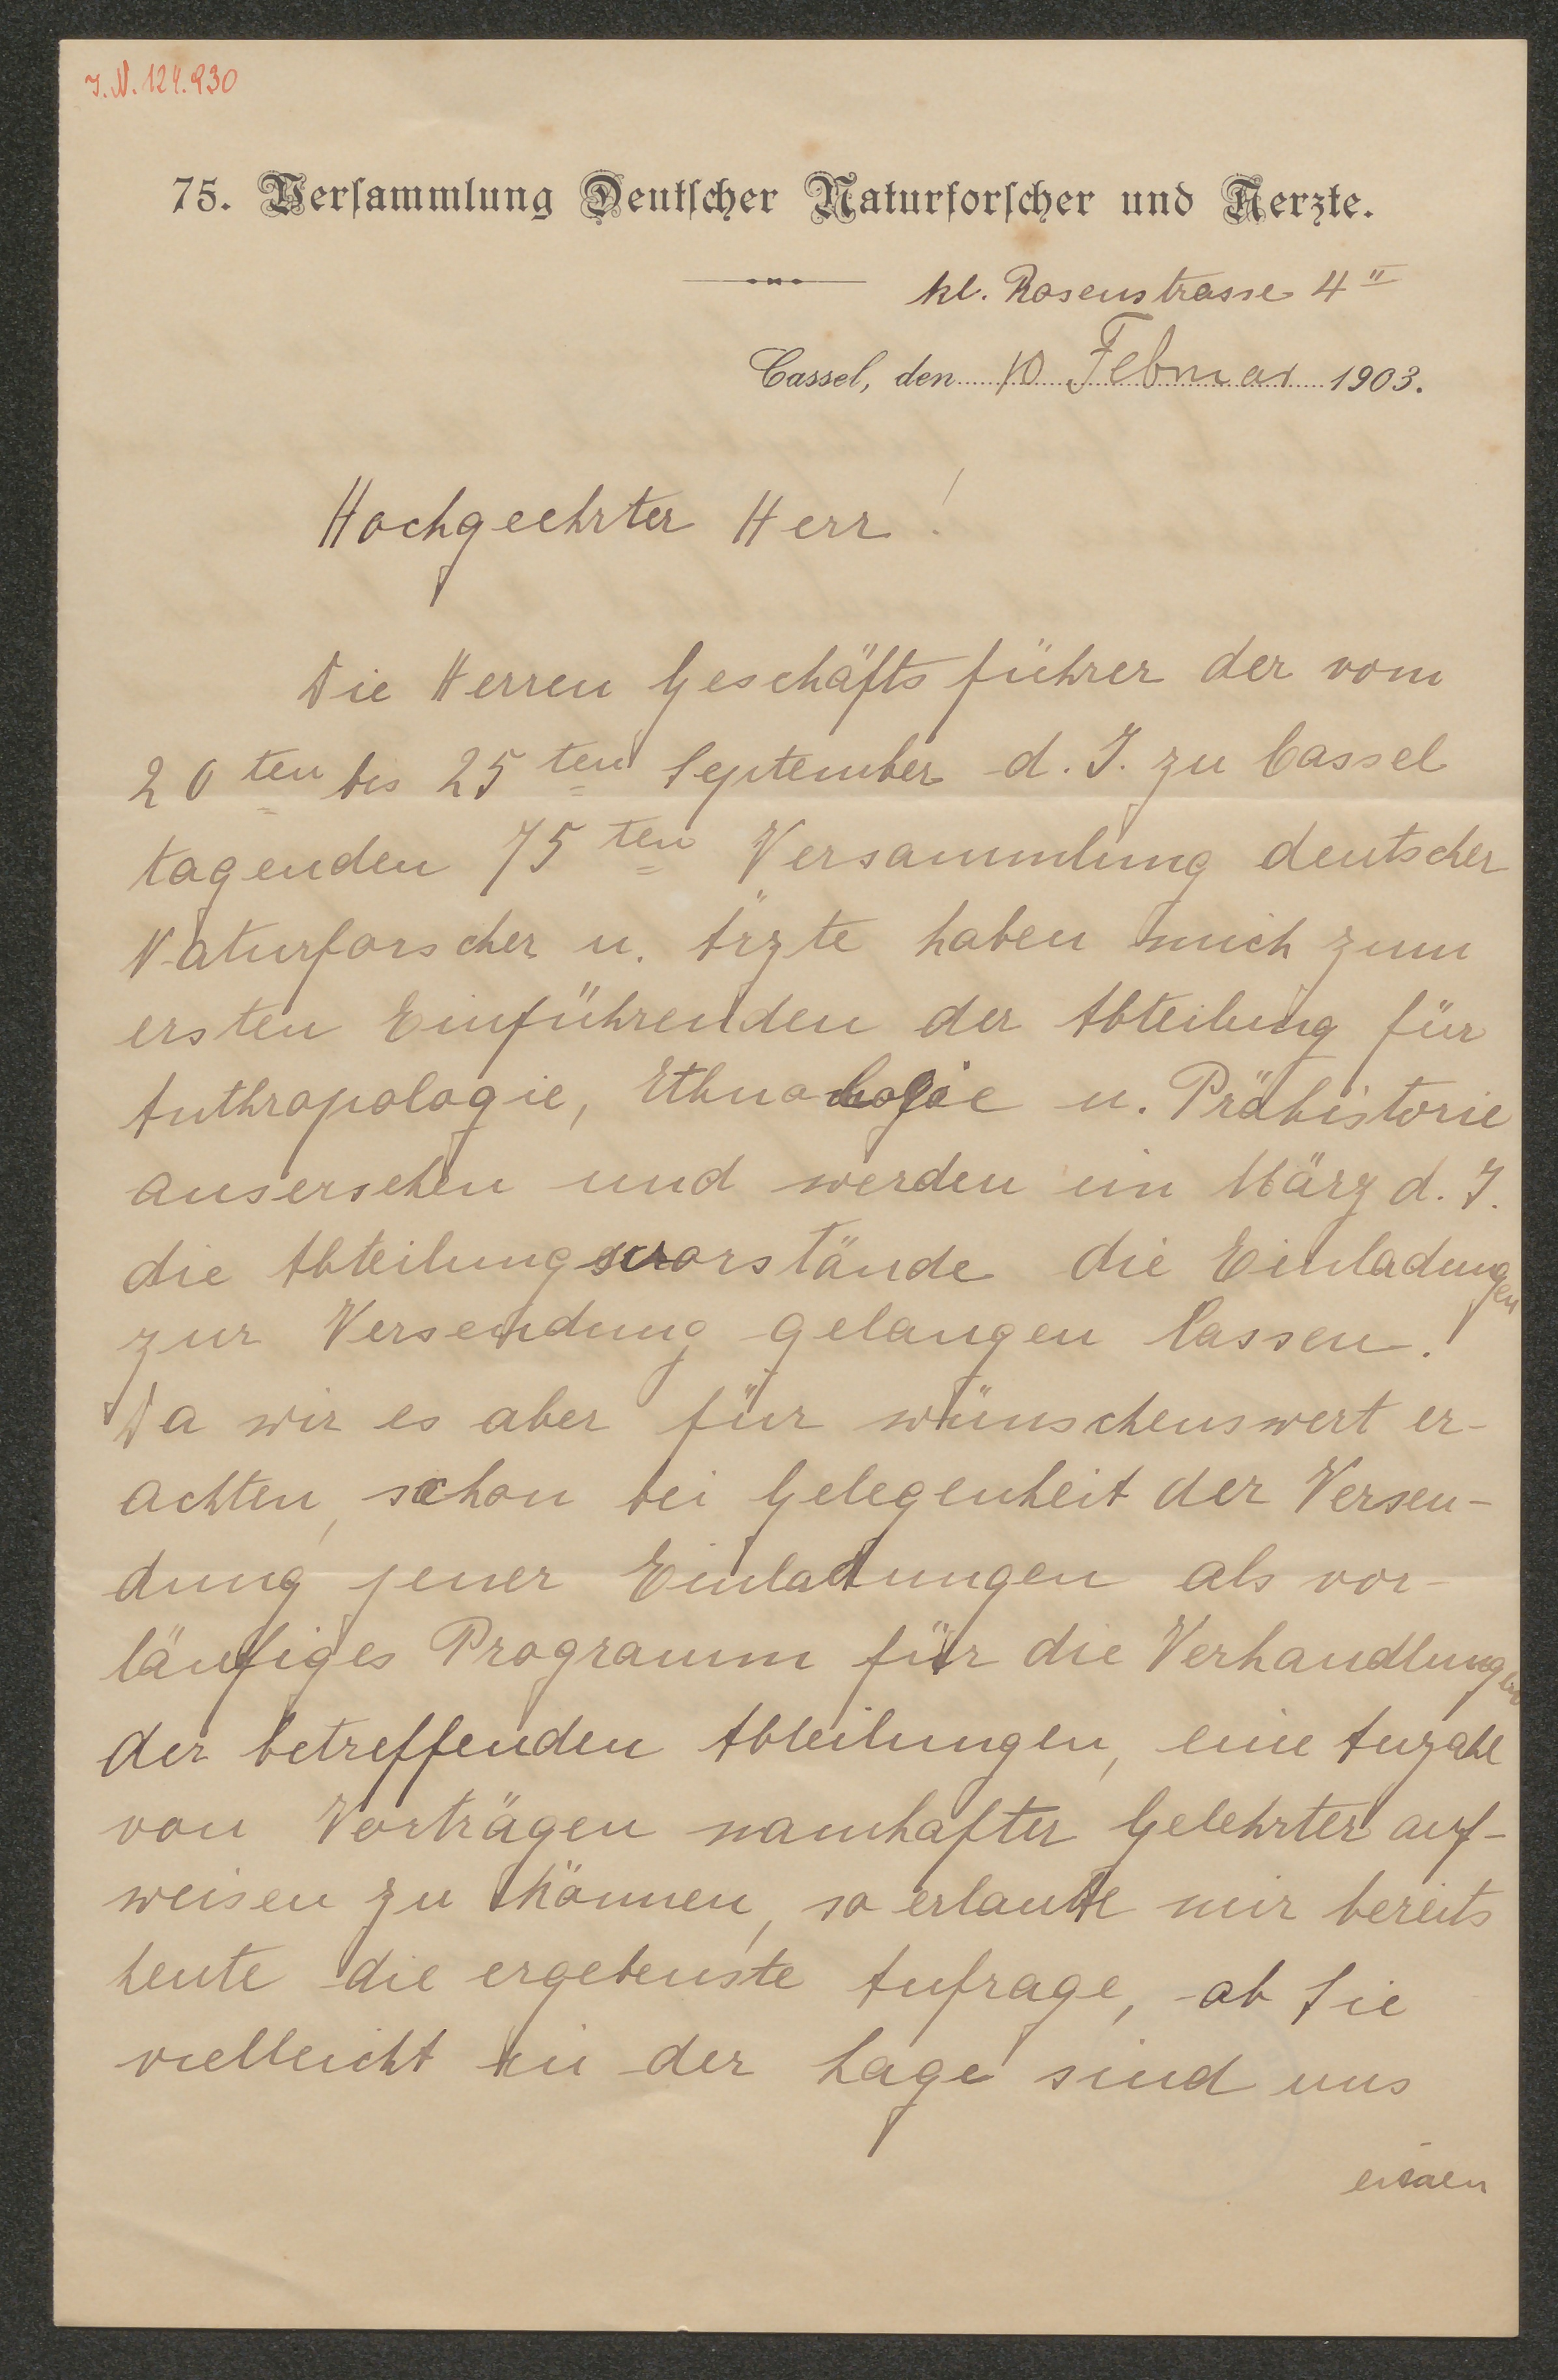 J. N. 124.930
75. Versammlung Deutscher Naturforscher und Aerzte.
kl. Rosenstrasse 4 II
Cassel, den 10 Februar 1903.
Hochgeehrter Herr!
Die Herren Geschäftsführer der vom
20ten bis 25ten September d. J. zu Cassel
tagenden 75ten Versammlung deutscher
Naturforscher u. Ärzte haben mich zum
ersten Einführenden der Abteilung für
Anthropologie, Ethnologie u. Prähistorie
ausersehen und werden im März d. J.
die Abteilungsvorstände die Einladungen
zur Versendung gelangen lassen.
Da wir es aber für wünschenswert er-
achten, schon bei Gelegenheit der Versen-
dung jener Einladungen als vor-
läufiges Programm für die Verhandlungen
der betreffenden Abteilungen, eine Anzahl
von Vorträgen namhafter Gelehrter auf-
weisen zu können, so erlaube mir bereits
heute die ergebenste Anfrage, ob Sie
vielleicht in der Lage sind uns
einen